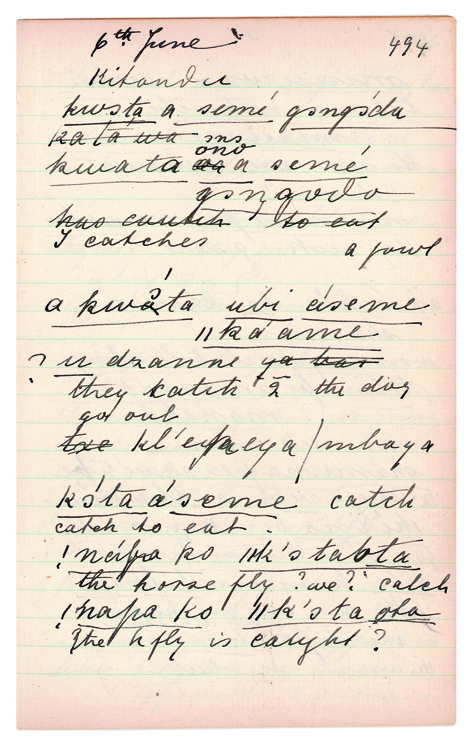 6th June 494
Kitondu
kwsta a semé gsngsda
kata wa sns
ono
kwata a semé
gsngodo
has caught to eat
I catches a fowl
a kwata ubi áseme
"káame
? u dzanne ya has
they catch the dog
go out
kl'eyaeya/mbaya
kstaáseme catch
catch to eat.
!nápa ko "k'stabta
the horse fly ?we? catch
!napa ko "k'sta
the hfly is caught?